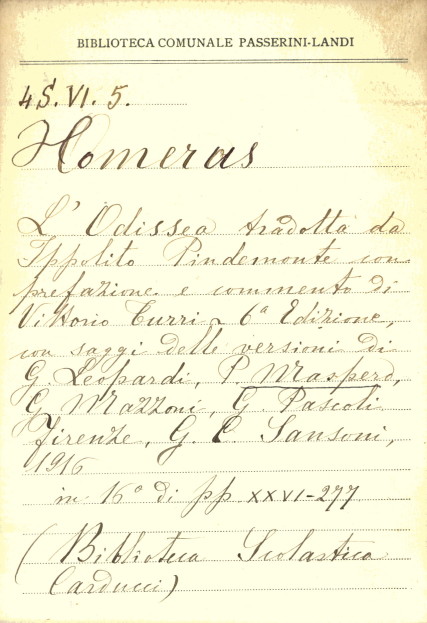 BIBLIOTECA COMUNALE PASSERINI-LANDI
4S. VI. 5.
Homerus
L' Odissea tradotta da
Ippolito Pindemonte con
prefazione e commento di
Vittorio Turri - 6ª Edizione,
con saggi delle versioni di
G. Leopardi, P. Maspero,
G. Mazzoni, G. Pascoli
Firenze, G. C. Sansoni,
1916
in 16° di pp XXVI-277
(Biblioteca Scolastica
Carducci)